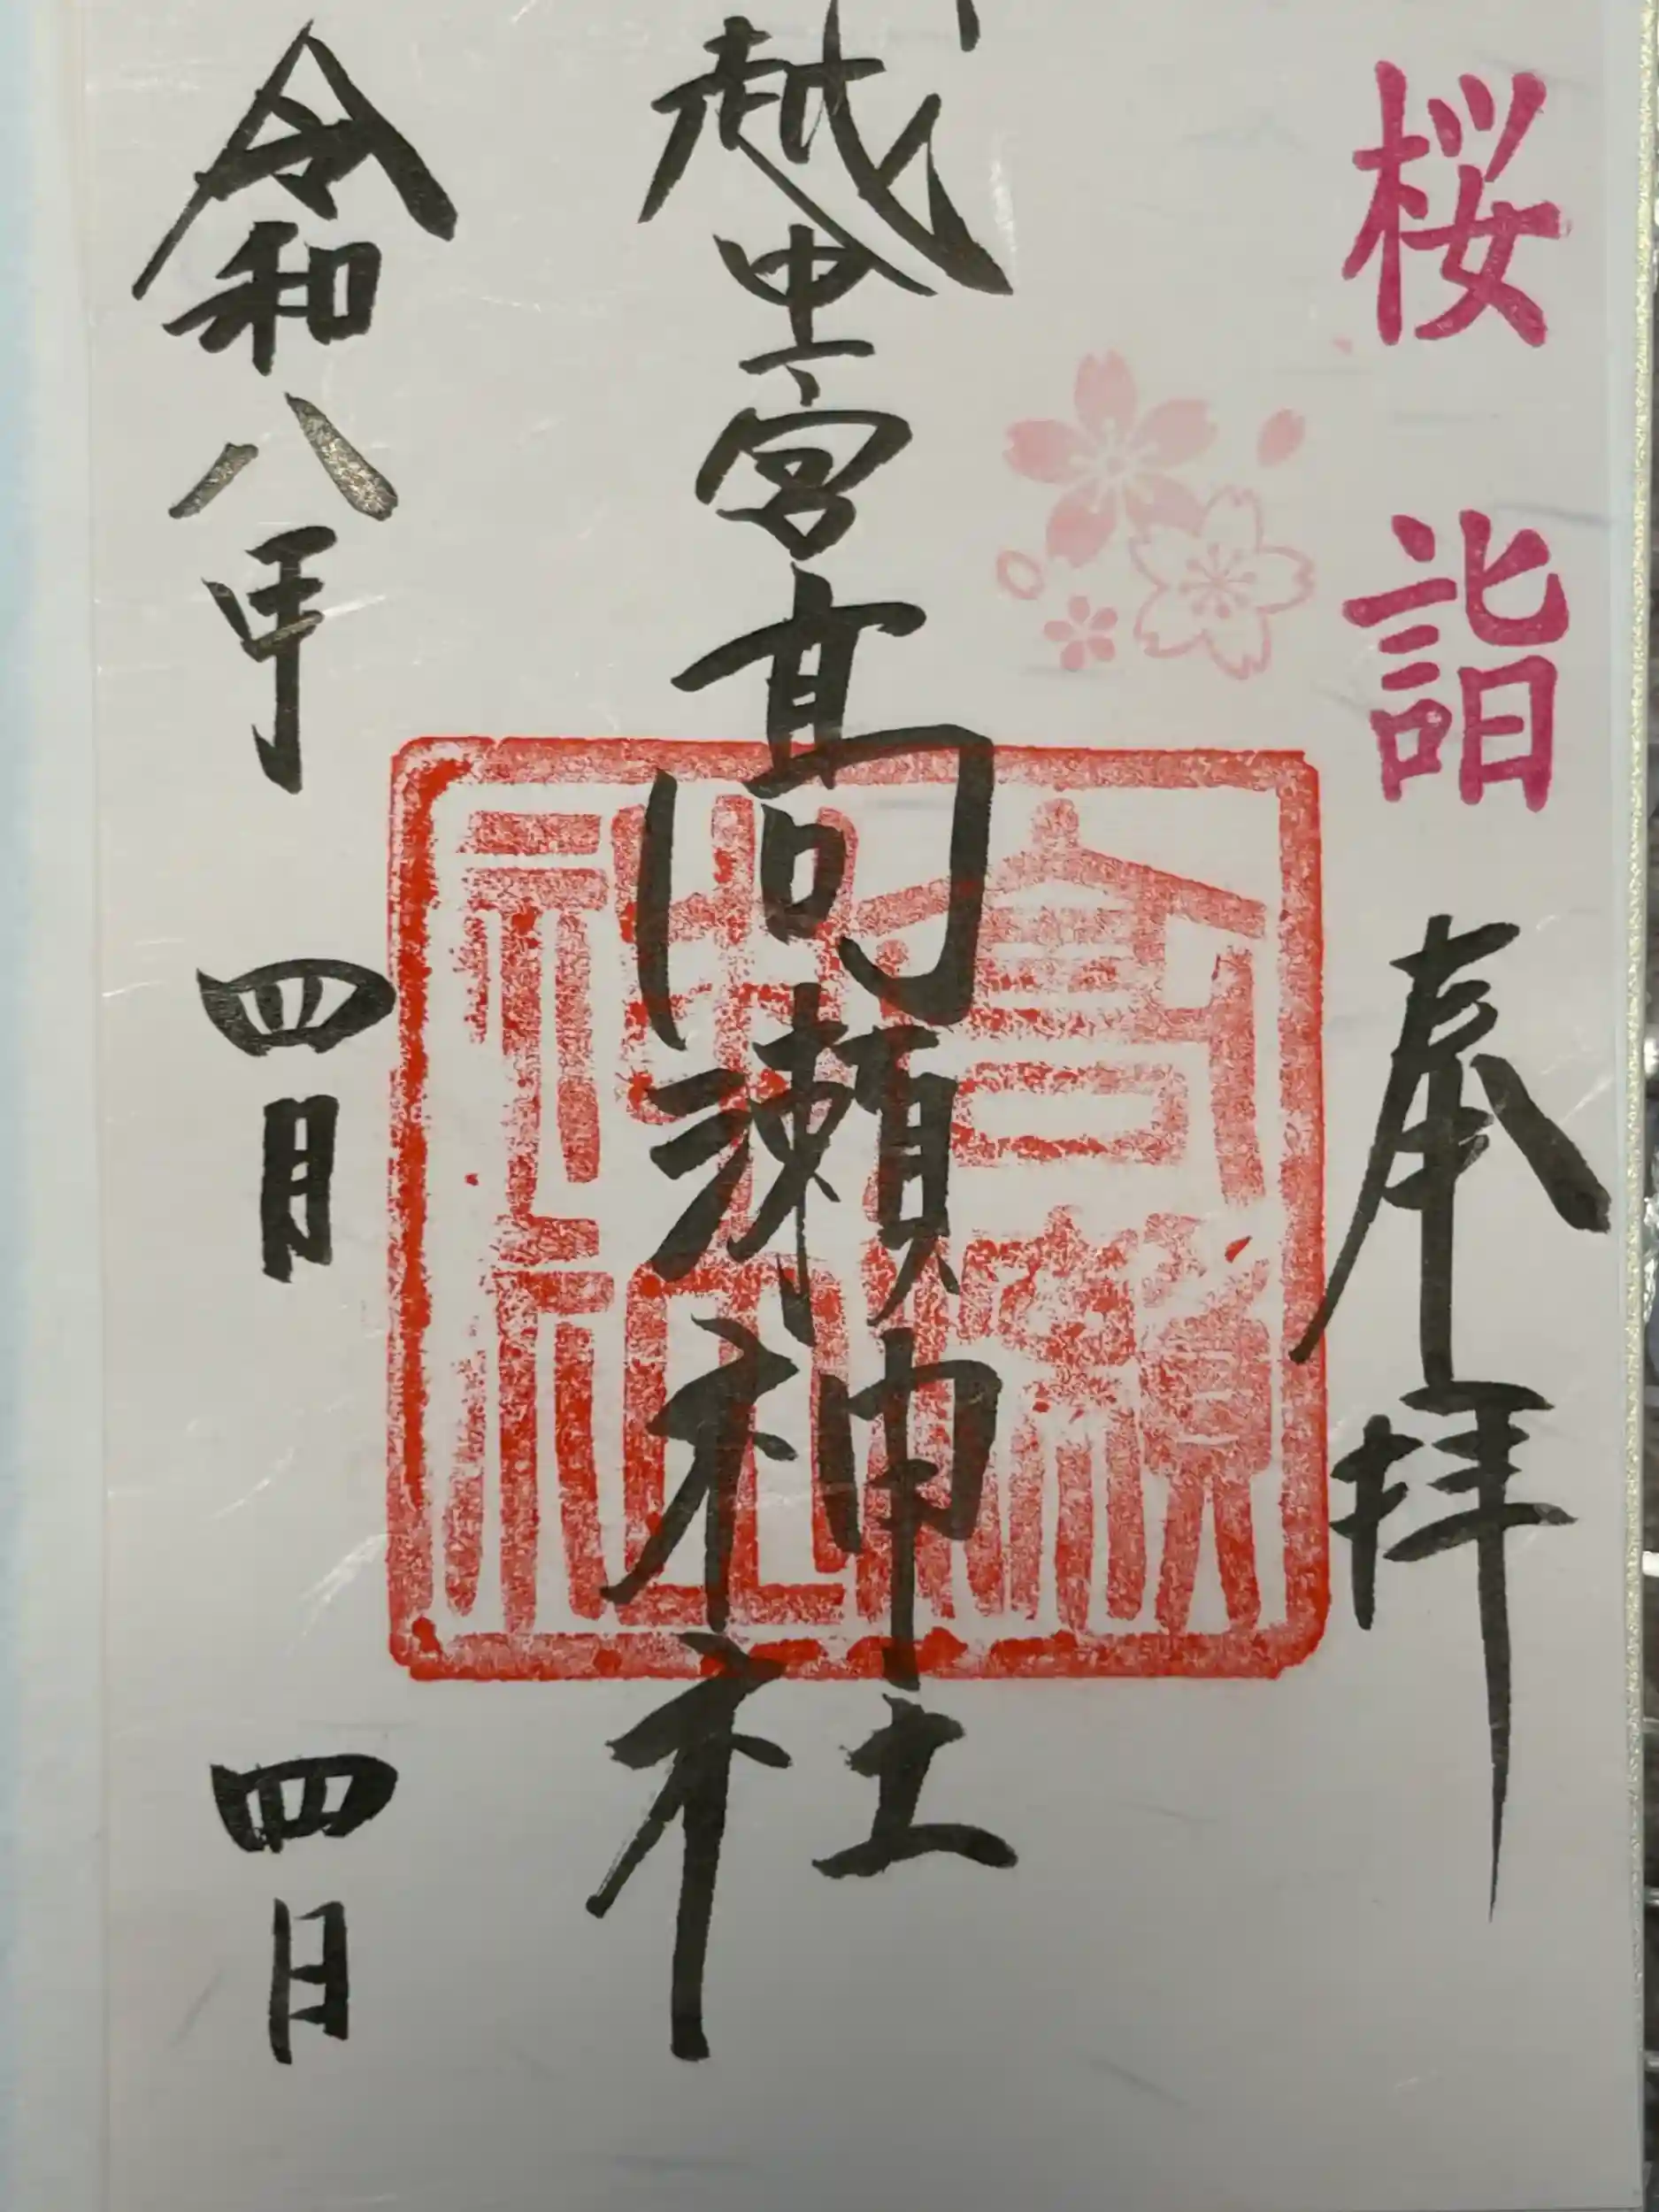 桜詣 奉拝
越中一宮髙瀬神社
高瀬
神社
令和八年 四月 四日